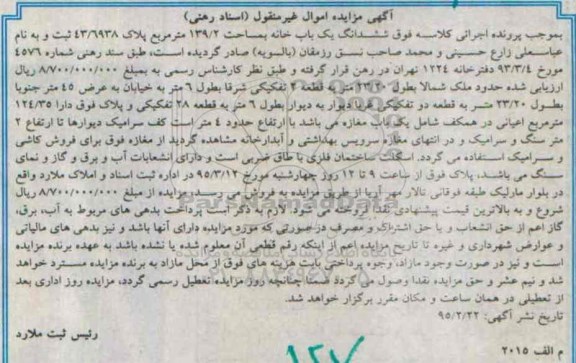 آگهی مزایده اموال غیرمنقول (اسناد رهنی)
بموجب پرونده اجرائی کلاسه فوق ششدانگ یک باب خانه بمساحت ۱۳۹/۲ مترمربع پلاک ۴۳/۶۹۳۸ ثبت و به نام
عباسعلی زارع حسینی و محمد صاحب نسق رزمقان (بالسویه) صادر گردیده است، طبق سند رهنی شماره ۴۵۷۶
مورخ ۹۳/۳/۴ دفترخانه ۱۲۲۴ تهران در رهن قرار گرفته و طبق نظر کارشناس رسمی به مبلغ ۸/۷۰۰/۰۰۰/۰۰۰ ریال
ارزیابی شده حدود ملک شمالا بطول ۲۳/۲۰ متر به قطعه ۴ تفکیکی شرقا بطول ۶ متر به خیابان به عرض ۴۵ متر جنوبا
بطول ۲۳/۲۰ متر به قطعه دو تفکیکی غربا دیوار به دیوار بطول ۶ متر به قطعه ۲۸ تفکیکی و پلاک فوق دارا ۱۲۴/۳۵
مترمربع اعیانی در همکف شامل یک باب مغازه می باشد با ارتفاع حدود ۴ متر است کف سرامیک دیوارها تا ارتفاع ۲
متر سنگ و سرامیک و در انتهای مغازه سرویس بهداشتی و آبدارخانه مشاهده گردید از مغازه فوق برای فروش کاشی
و سرامیک استفاده می گردد. اسکلت ساختمان فلزی با طاق ضربی است و دارای انشعابات آب و برق و گاز و نمای
سنگ می باشد، پلاک فوق از ساعت ۹ تا ۱۲ روز چهارشنبه مورخ ۹۵/۳/۱۲ در اداره ثبت اسناد و املاک ملارد واقع
در بلوار مارلیک طبقه فوقانی تالار مهر آریا از طریق مزایده به فروش می رسد. مزایده از مبلغ ۸/۷۰۰/۰۰۰/۰۰۰ ریال
شروع و به بالاترین قیمت پیشنهادی نقدا فروخته می شود. لازم به ذکر است پرداخت بدهی های مربوط به آب، برق،
گاز اعم از حق انشعاب و یا حق اشتراک و مصرف در صورتی که مورد مزایده دارای آنها باشد و نیز بدهی های مالیاتی
و عوارض شهرداری و غیره تا تاریخ مزایده اعم از اینکه رقم قطعی آن معلوم شده یا نشده باشد به عهده برنده مزایده
است و نیز در صورت وجود مازاد، وجوه پرداختی بابت هزینه های فوق از محل مازاد به برنده مزایده مسترد خواهد
شد و نیم عشر و حق مزایده نقدا وصول می گردد ضمنا چنانچه روز مزایده تعطیل رسمی گردد، مزایده روز اداری بعد
از تعطیلی در همان ساعت و مکان مقرر برگزار خواهد شد.
تاریخ نشر آگهی: ۹۵/۲/۲۲
رئیس ثبت ملارد
م الف ۲۰۱۵